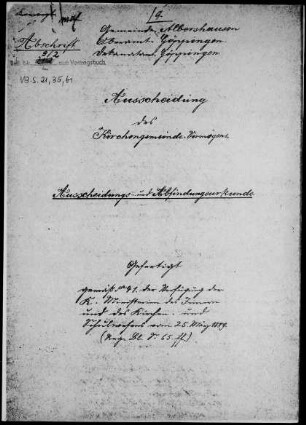 19.
Gemeinde Albershausen
Oberamt Göppingen
Dekanatamt Göppingen
Abschrift
VB S. 21, 35, 61
Ausscheidung
des
Kirchengemeinde-Vermögens
Ausscheidungs- und Abfindungsurkunde
Gefertigt
gemäß § 41. der Verfügung der
K. Ministerien des Innern
und des Kirchen- und
Schulwesens vom 25. März 1889.
(Reg. Bl. S. 55 ff)